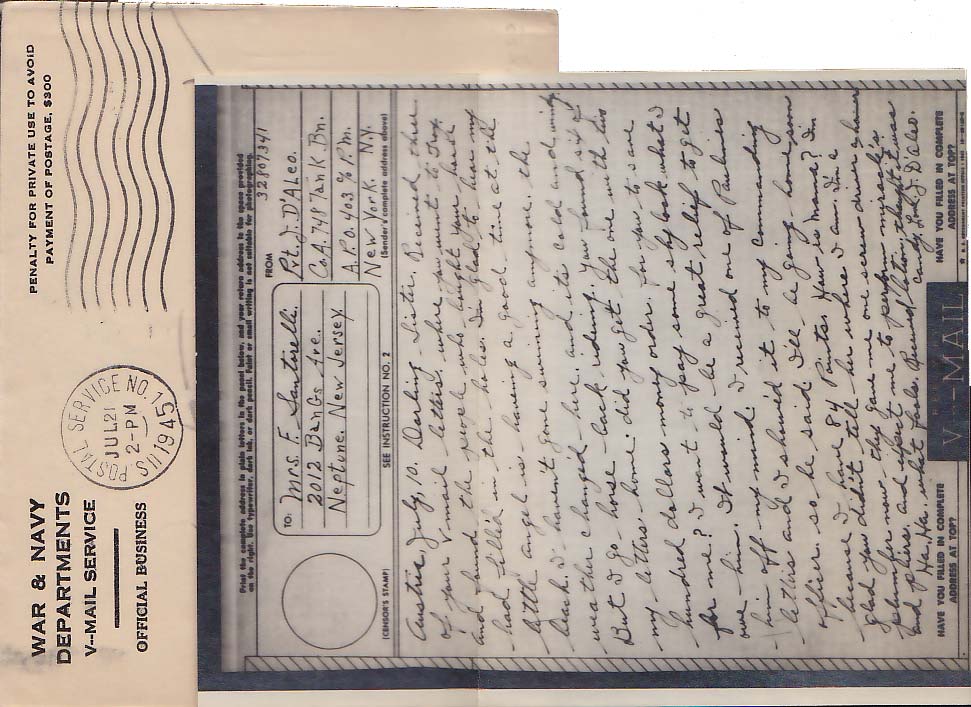 PENALTY FOR PRIVATE USE TO AVOID
PAYMENT OF POSTAGE, $300
U.S. POSTAL SERVICE NO. 1
JUL 21
2-PM
1945
WAR & NAVY
DEPARTMENTS
V--MAIL SERVICE
OFFICIAL BUSINESS
Print the complete address in plain letters in the panel below, and your return address in the space provided
on the right. Use typewriter, dark ink, or dark pencil. Faint or small writing is not suitable for photographing.
TO:
Mrs. F. Santorelli.
2012 Bangs Ave.
Neptune. New Jersey
FROM
32807341
Pvt. J. D'Aleo.
Co. A. 748 Tank Bn.
A.P.O. 403 % P.M.
New York. N.Y.
(Sender's complete address above)
(CENSOR'S STAMP)
SEE INSTRUCTION NO. 2
Austria, July, 10. Darling Sister. Received three
of your V mail letters, where you went to
and found the people who bought your
had filled in the holes. I'm glad to hear my
little angel is having a good time at the
beach. I haven't gone swiming anymore. the
weather changed here. and its cold and windy.
But I go horse-back riding. You found six of
my letters home. did you get the one with two
hundred dollars money order. for you to save
for me? I went to pay some shylock what I
owe him. It would be a great relief to get
him off my mind. I received one of Paulines
letters and I showed it to my commanding
officer. so he said I'll be going home soon
because I have 84 Points. How is Mom? I'm
glad you didn't tell her where I am. I'm a
plumber now. they gave me one screw driver, a
and pliers. and expect me to perform miracle's
Ha, Ha. what fools. Received thought it was
candy. Love J. D'Aleo.
HAVE YOU FILLED IN COMPLETE
ADDRESS AT TOP?
V---MAIL
HAVE YOU FILLED IN COMPLETE
ADDRESS AT TOP?